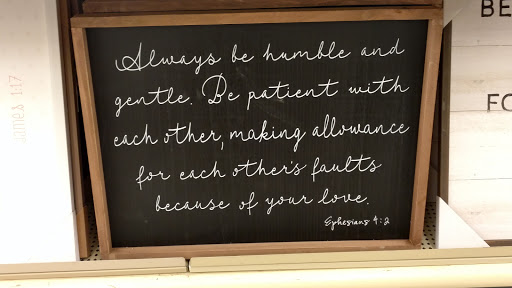 Always be humble and
gentle. Be patient with
each other, making allowance
for each other's faults
because of your love.
Ephesians 4:2
James 1:17
BE
FO